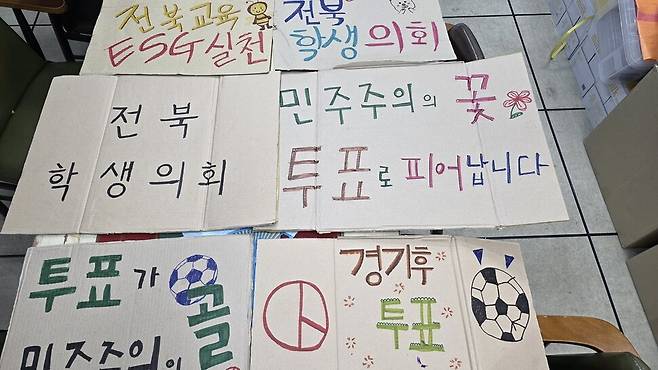 전북교육
ESG실천
전북
학생의회
전북
학생의회
민주주의의 꽃
투표로 피어납니다
투표가
골
민주주의의
경기후
투표